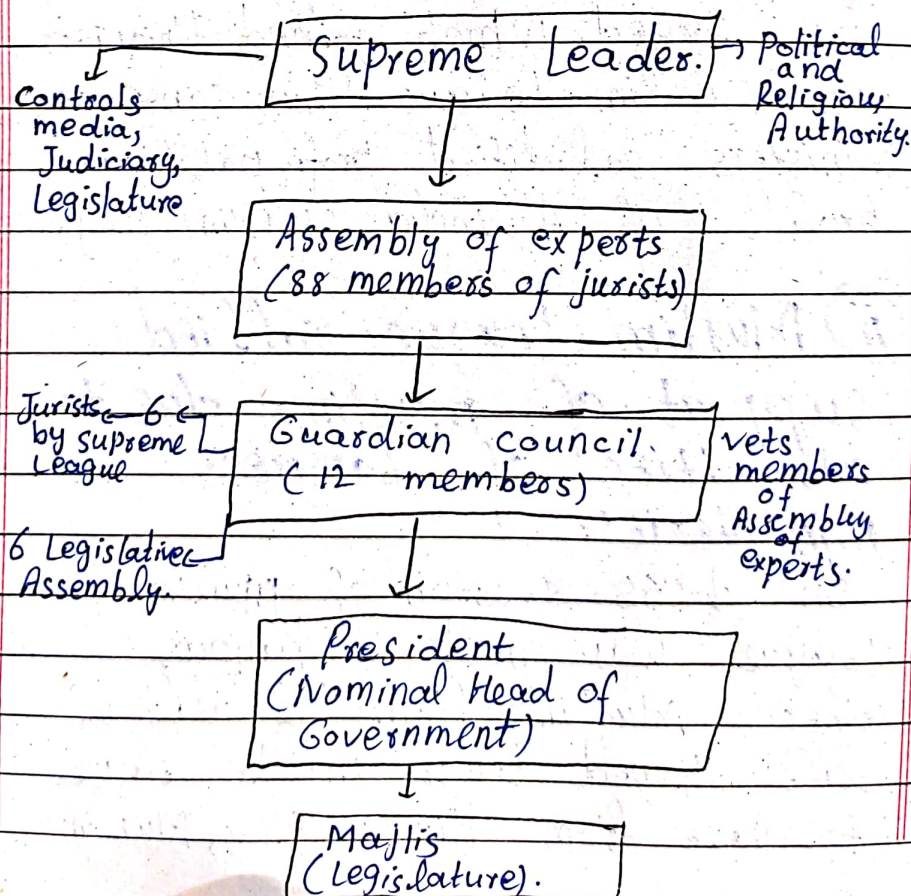 Supreme Leader.
→ Political
and
Religious
Authority.
Controls
media,
Judiciary,
Legislature
Assembly of experts
(88 members of jurists)
Jurists 6
by supreme
League
Guardian council.
(12 members)
vets
members
of
Assembly
of
experts.
6 Legislative
Assembly.
President
(Nominal Head of
Government)
Majlis
(Legislature).